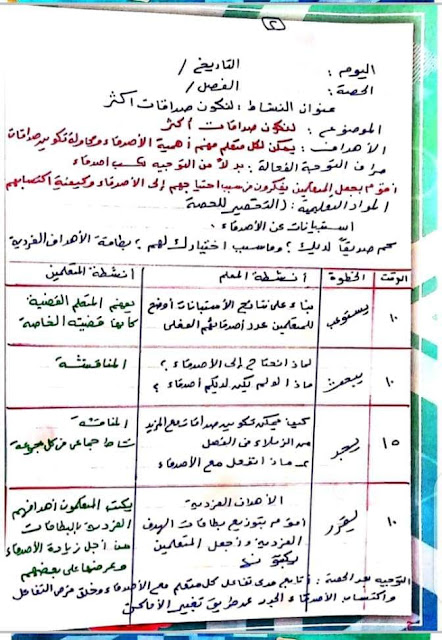 ٢
اليوم : التاريخ /
الحصة : الفصل /
عنوان النشاط : لنكون صداقات أكثر
الموضوع : لنكون صداقات أكثر
الأهداف : يمكن لكل متعلم فهم أهمية الأصدقاء ومحاولة تكوين صداقات
مراف التوجيه الفعالة : بدلاً من التوجيه لكسب أصدقاء
أقوم بجعل المعلمين يفكرون من سبب احتياجهم إلى الأصدقاء وكيفية اكتسابهم
المواد التعليمية : (التحضير للحصة)
استبيانات عن الأصدقاء .
كم صديقاً لديك ؟ وما سبب اختيارك لهم ؟ بطاقة الأهداف الفردية
الوقت الخطوة أنشطة المعلم أنشطة المتعلمين
١٠ يستوعب بناء على نتائج الاستبيانات أوضح يفهم المتعلم القضية
للمتعلمين عدد أصدقائهم الفعلى كأنها قضيته الخاصة
١٠ يبحث لماذا نحتاج إلى الأصدقاء ؟ المناقشة
ماذا لو لم يكن لديكم أصدقاء ؟
١٥ يجد كيف يمكن تكوين صداقات مع المزيد المناقشة
من الزملاء فى الفصل نشاط جماعى من كل مجموعة
ماذا نفعل مع الأصدقاء
١٠ يقرر الأهداف الفردية يكتب المتعلمون أهدافهم
أقوم بتوزيع بطاقات الهدف الفردية بالبطاقات
الفردية وأجعل المتعلمين من أجل زيادة الأصدقاء
يكتبونها وعرضها على بعضهم
التوجيه بعد الحصة : أتابع مدى تفاعل كل متعلم مع الأصدقاء وخلق فرص التفاعل
واكتساب الأصدقاء الجدد عن طريق تغيير الأماكن